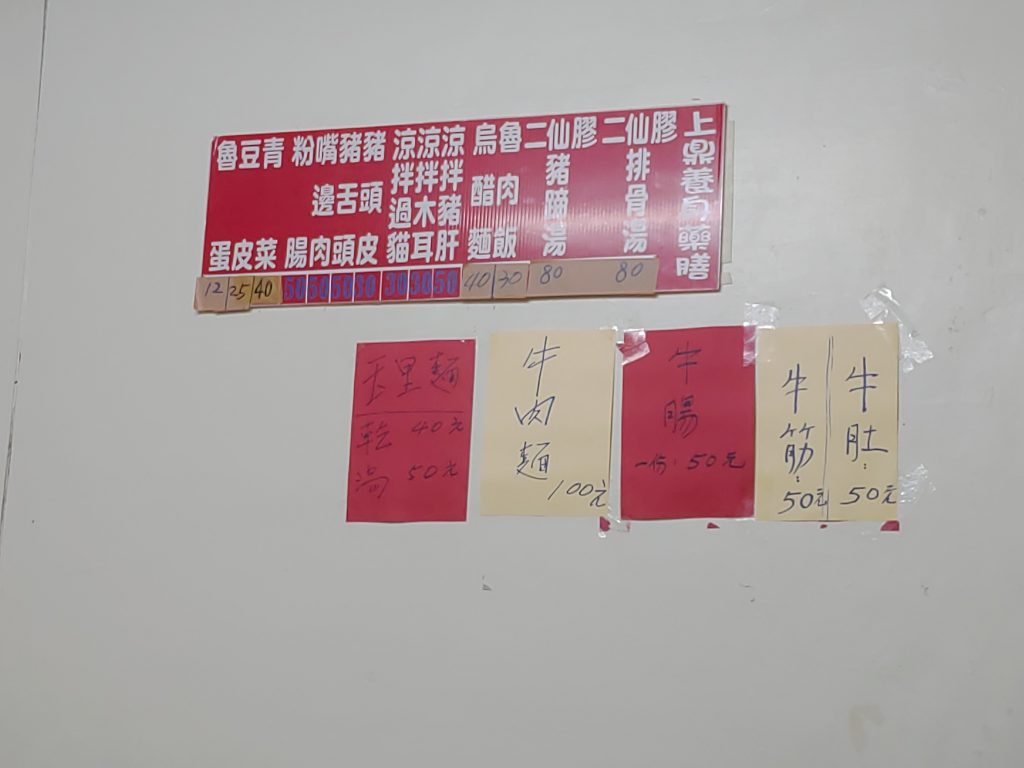 上鼎養身藥膳
二仙膠排骨湯
80
二仙膠豬蹄湯
80
魯肉飯
30
烏醋麵
40
涼拌豬肝
50
涼拌木耳
30
涼拌過貓
30
豬頭皮
豬舌頭
50
嘴邊肉
50
粉腸
50
青菜
40
豆皮
25
魯蛋
12
玉里麵
乾 40元
湯 50元
牛肉麵
100元
牛腸
一份:50元
牛肚:
50元
牛筋:
50元